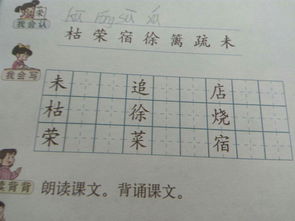 我会认
枯 荣 宿 徐 篱 疏 未
我会写
未 追 店
枯 徐 烧
荣 菜 宿
读读背背
朗读课文。背诵课文。